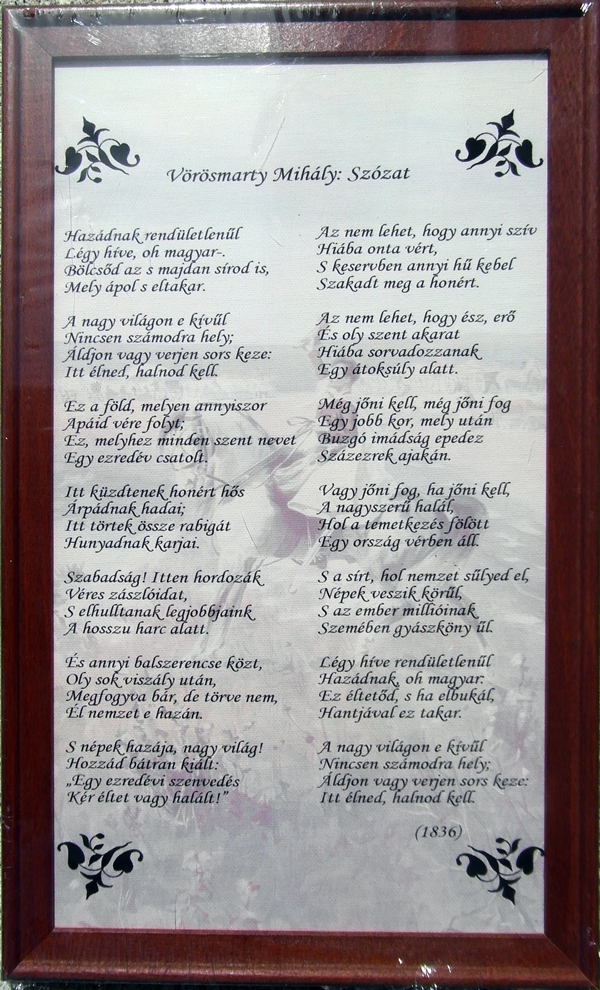 Vörösmarty Mihály: Szózat
Hazádnak rendületlenűl
Légy híve, oh magyar-.
Bölcsőd az s majdan sírod is,
Mely ápol s eltakar.
A nagy világon e kívűl
Nincsen számodra hely;
Áldjon vagy verjen sors keze:
Itt élned, halnod kell.
Ez a föld, melyen annyiszor
Apáid vére folyt;
Ez, melyhez minden szent nevet
Egy ezredév csatolt.
Itt küzdtenek honért hős
Árpádnak hadai;
Itt törtek össze rabigát
Hunyadnak karjai.
Szabadság! Itten hordozák
Véres zászlóidat,
S elhulltanak legjobbjaink
A hosszu harc alatt.
És annyi balszerencse közt,
Oly sok viszály után,
Megfogyva bár, de törve nem,
Él nemzet e hazán.
S népek hazája, nagy világ!
Hozzád bátran kiált:
„Egy ezredévi szenvedés
Kér éltet vagy halált!”
Az nem lehet, hogy annyi szív
Hiába onta vért,
S keservben annyi hű kebel
Szakadt meg a honért.
Az nem lehet, hogy ész, erő
És oly szent akarat
Hiába sorvadozzanak
Egy átoksúly alatt.
Még jőni kell, még jőni fog
Egy jobb kor, mely után
Buzgó imádság epedez
Százezrek ajakán.
Vagy jőni fog, ha jőni kell,
A nagyszerű halál,
Hol a temetkezés fölött
Egy ország vérben áll.
S a sírt, hol nemzet sűlyed el,
Népek veszik körűl,
S az ember millióinak
Szemében gyászköny űl.
Légy híve rendületlenűl
Hazádnak, oh magyar:
Ez éltetőd, s ha elbukál,
Hantjával ez takar.
A nagy világon e kívűl
Nincsen számodra hely;
Áldjon vagy verjen sors keze:
Itt élned, halnod kell.
(1836)